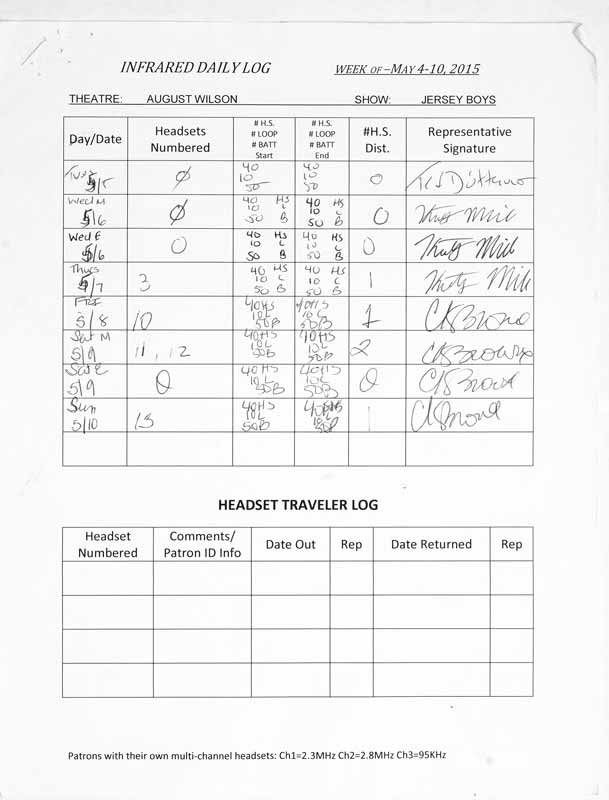 INFRARED DAILY LOG WEEK OF –MAY 4-10, 2015
THEATRE: AUGUST WILSON SHOW: JERSEY BOYS
Day/Date Headsets Numbered # H.S. # LOOP # BATT Start # H.S. # LOOP # BATT End #H.S. Dist. Representative Signature
Tues 5/5 0 40 10 50 40 10 50 0
Wed M 5/6 0 40 HS 10 L 50 B 40 HS 10 L 50 B 0
Wed E 5/6 0 40 HS 10 L 50 B 40 HS 10 L 50 B 0
Thurs 5/7 3 40 HS 10 L 50 B 40 HS 10 L 50 B 1
FRI 5/8 10 40HS 10L 50B 40HS 10L 50B 1
Sat M 5/9 11, 12 40HS 10L 50B 40HS 10L 50B 2
Sat E 5/9 0 40HS 10L 50B 40HS 10L 50B 0
Sun 5/10 13 40HS 10L 50B 40HS 10L 50B 1
HEADSET TRAVELER LOG
Headset Numbered Comments/ Patron ID Info Date Out Rep Date Returned Rep
Patrons with their own multi-channel headsets: Ch1=2.3MHz Ch2=2.8MHz Ch3=95KHz